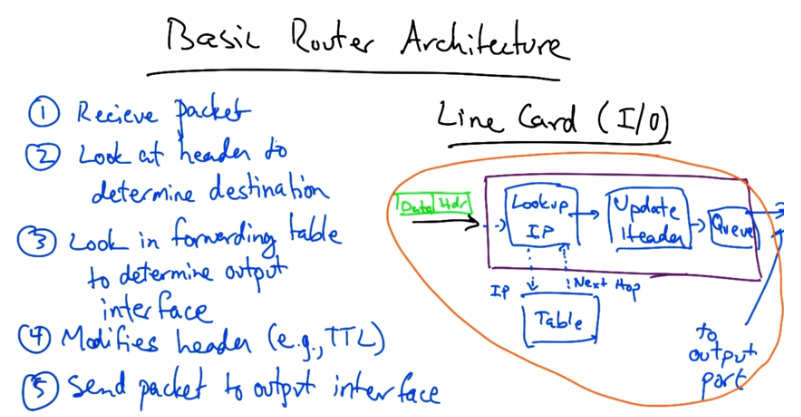 Basic Router Architecture
① Recieve packet
② Look at header to
determine destination
③ Look in forwarding table
to determine output
interface
④ Modifies header (e.g., TTL)
⑤ Send packet to output interface
Line Card (I/O)
Data Hdr
Lookup
IP
Update
Header
Queue
IP
Next Hop
Table
to
output
port